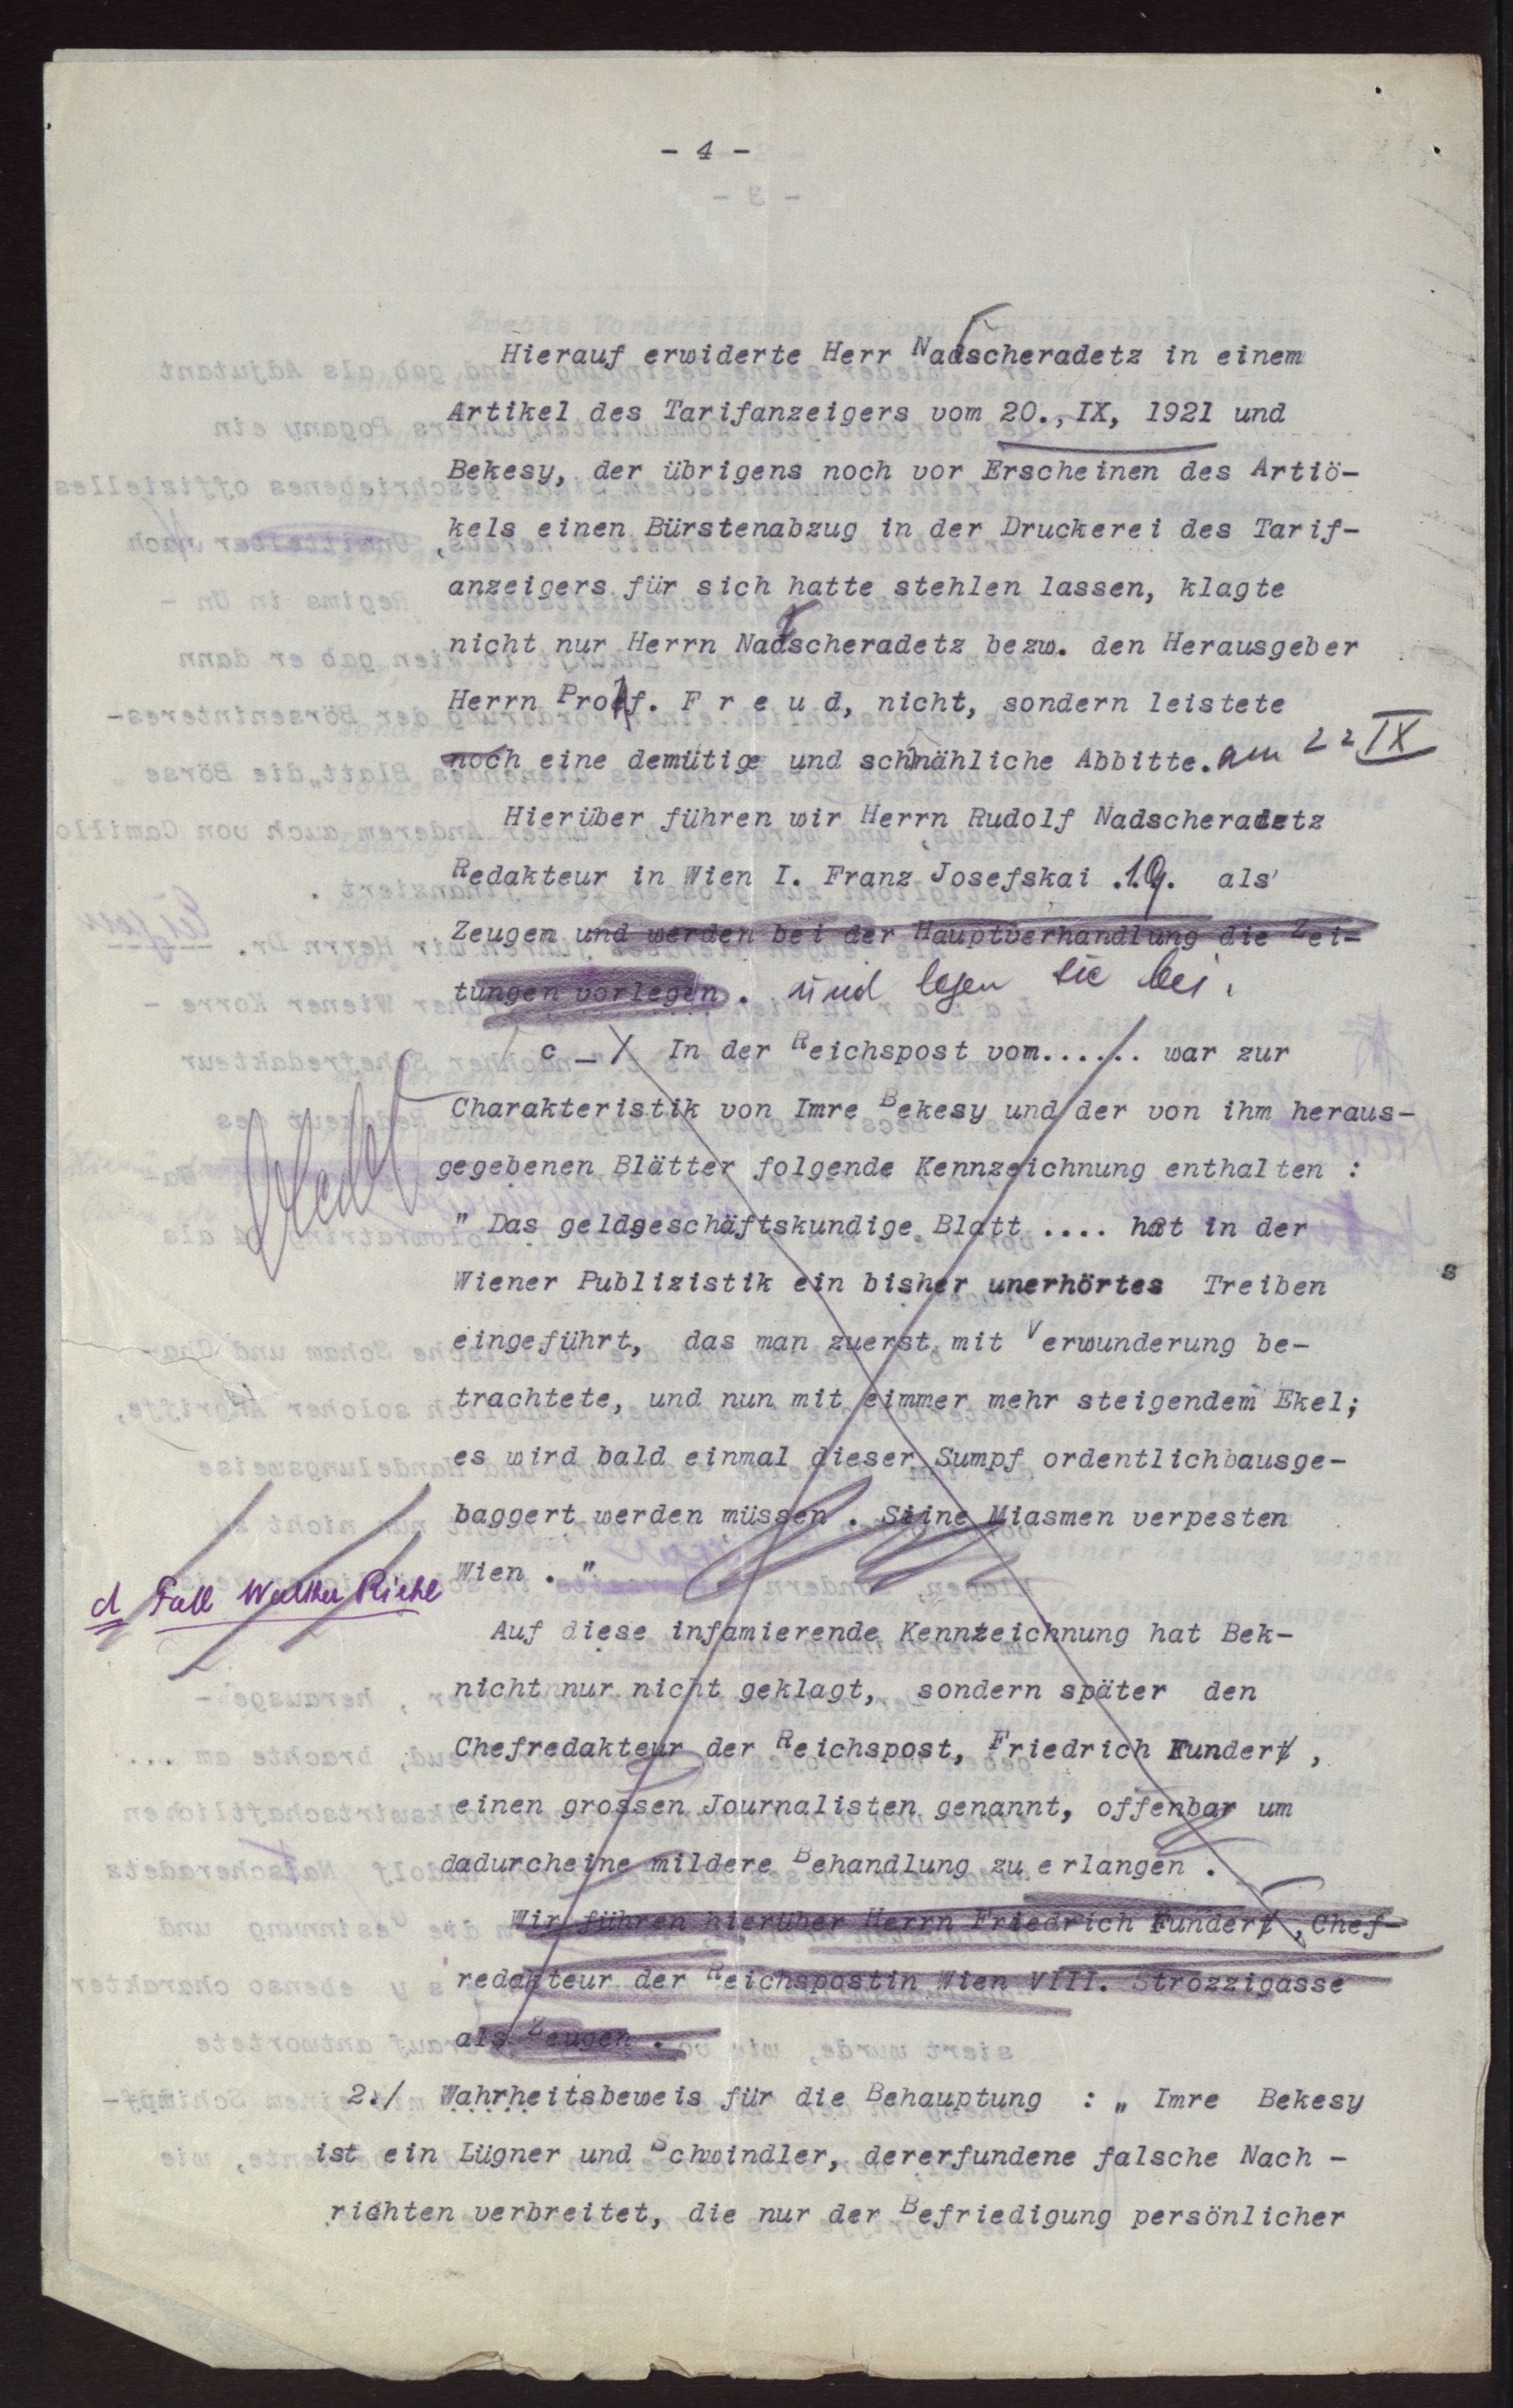 - 4 -
Hierauf erwiderte Herr Nadscheradetz in einem
Artikel des Tarifanzeigers vom 20., IX, 1921 und
Bekesy, der übrigens noch vor Erscheinen des Artiö-
kels einen Bürstenabzug in der Druckerei des Tarif-
anzeigers für sich hatte stehlen lassen, klagte
nicht nur Herrn Nadscheradetz bezw. den Herausgeber
Herrn Prof. F r e u d, nicht, sondern leistete
noch eine demütige und schmähliche Abbitte. am 22 IX
Hierüber führen wir Herrn Rudolf Nadscheradetz
Redakteur in Wien I. Franz Josefskai .19. als
Zeugen und werden bei der Hauptverhandlung die Zei-
tungen vorlegen. und legen sie bei.
c _ / In der Reichspost vom...... war zur
Charakteristik von Imre Bekesy und der von ihm heraus-
gegebenen Blätter folgende Kennzeichnung enthalten :
" Das geldgeschäftskundige Blatt .... hat in der
Wiener Publizistik ein bisher unerhörtes Treiben
s
eingeführt, das man zuerst mit Verwunderung be-
trachtete, und nun mit eimmer mehr steigendem Ekel;
es wird bald einmal dieser Sumpf ordentlichbausge-
baggert werden müssen . Seine Miasmen verpesten
Wien . "
d Fall Walther Riehl
Auf diese infamierende Kennzeichnung hat Bek-
nicht nur nicht geklagt, sondern später den
Chefredakteur der Reichspost, Friedrich Fundert,
einen grossen Journalisten genannt, offenbar um
dadurcheine mildere Behandlung zu erlangen .
Wir führen hierüber Herrn Friedrich Fundert, Chef-
redakteur der Reichspostin Wien VIII. Strozzigasse
als Zeugen .
2./ Wahrheitsbeweis für die Behauptung : „ Imre Bekesy
ist ein Lügner und Schwindler, dererfundene falsche Nach -
richten verbreitet, die nur der Befriedigung persönlicher